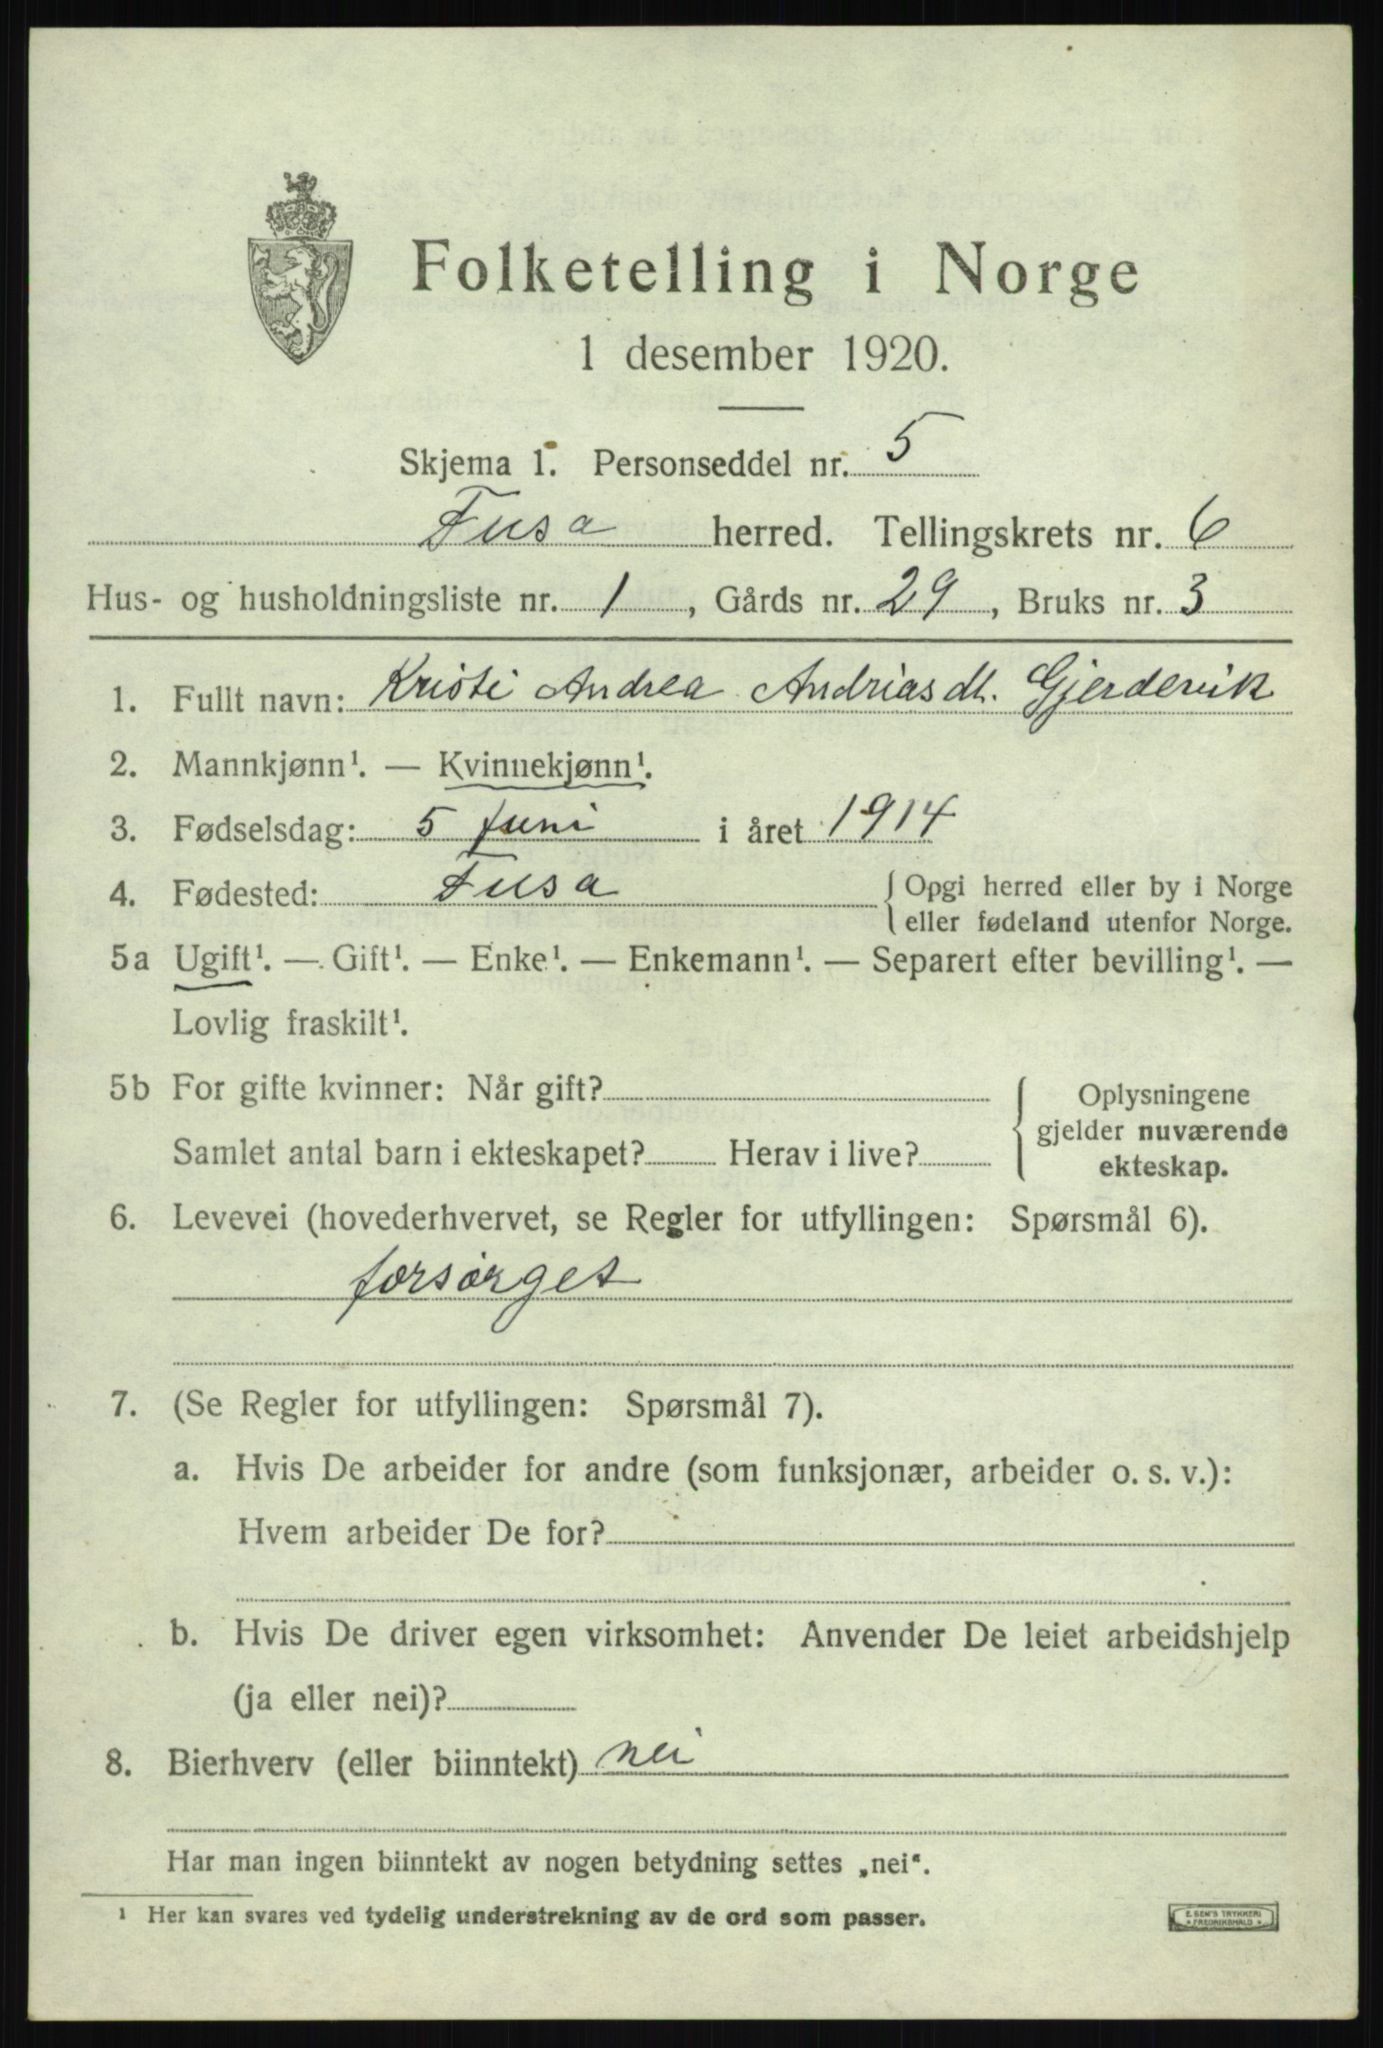 Folketelling i Norge
1 desember 1920.
Skjema 1. Personseddel nr. 5
Fusa herred. Tellingskrets nr. 6
Hus- og husholdningsliste nr. 1, Gårds nr. 29, Bruks nr. 3
1. Fullt navn: Kristi Andrea Andriasdt. Gjerdevik
2. Mannkjønn¹. — Kvinnekjønn¹.
3. Fødselsdag: 5 juni i året 1914
4. Fødested: Fusa {Opgi herred eller by i Norge
eller fødeland utenfor Norge.
5a Ugift¹. — Gift¹. — Enke¹. — Enkemann¹. — Separert efter bevilling¹. —
Lovlig fraskilt¹.
5b For gifte kvinner: Når gift?
Samlet antal barn i ekteskapet? Herav i live?
{Oplysningene
gjelder nuværende
ekteskap.
6. Levevei (hovederhvervet, se Regler for utfyllingen: Spørsmål 6).
forsørget
7. (Se Regler for utfyllingen: Spørsmål 7).
a. Hvis De arbeider for andre (som funksjonær, arbeider o. s. v.):
Hvem arbeider De for?
b. Hvis De driver egen virksomhet: Anvender De leiet arbeidshjelp
(ja eller nei)?
8. Bierhverv (eller biinntekt) nei
Har man ingen biinntekt av nogen betydning settes „nei“.
¹ Her kan svares ved tydelig understrekning av de ord som passer.
E. SEM'S TRYKKERI
FREDRIKSHALD